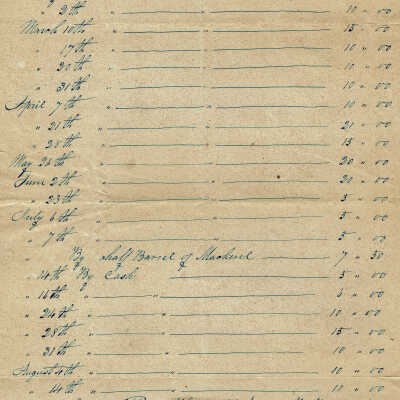 " 2th " 10 " 00
March 10th " " 15 " 00
" 17th " " 10 " 00
" 20th " " 10 " 00
" 31th " " 10 " 00
April 7th " " 10 " 00
" 21th " " 21 " 00
" 28th " " 15 " 00
May 26th " " 20 " 00
June 2th " " 20 " 00
" 23th " " 3 " 00
July 6th " " 5 " 00
" 7th " " 5 " 00
" By half Barrel of Mackerel 7 " 50
" 14th By Cash 5 " 00
" 16th " " 4 " 00
" 24th " " 10 " 00
" 28th " " 15 " 00
" 31th " " 10 " 00
August 4th " " 10 " 00
" 14th " " 10 " 00